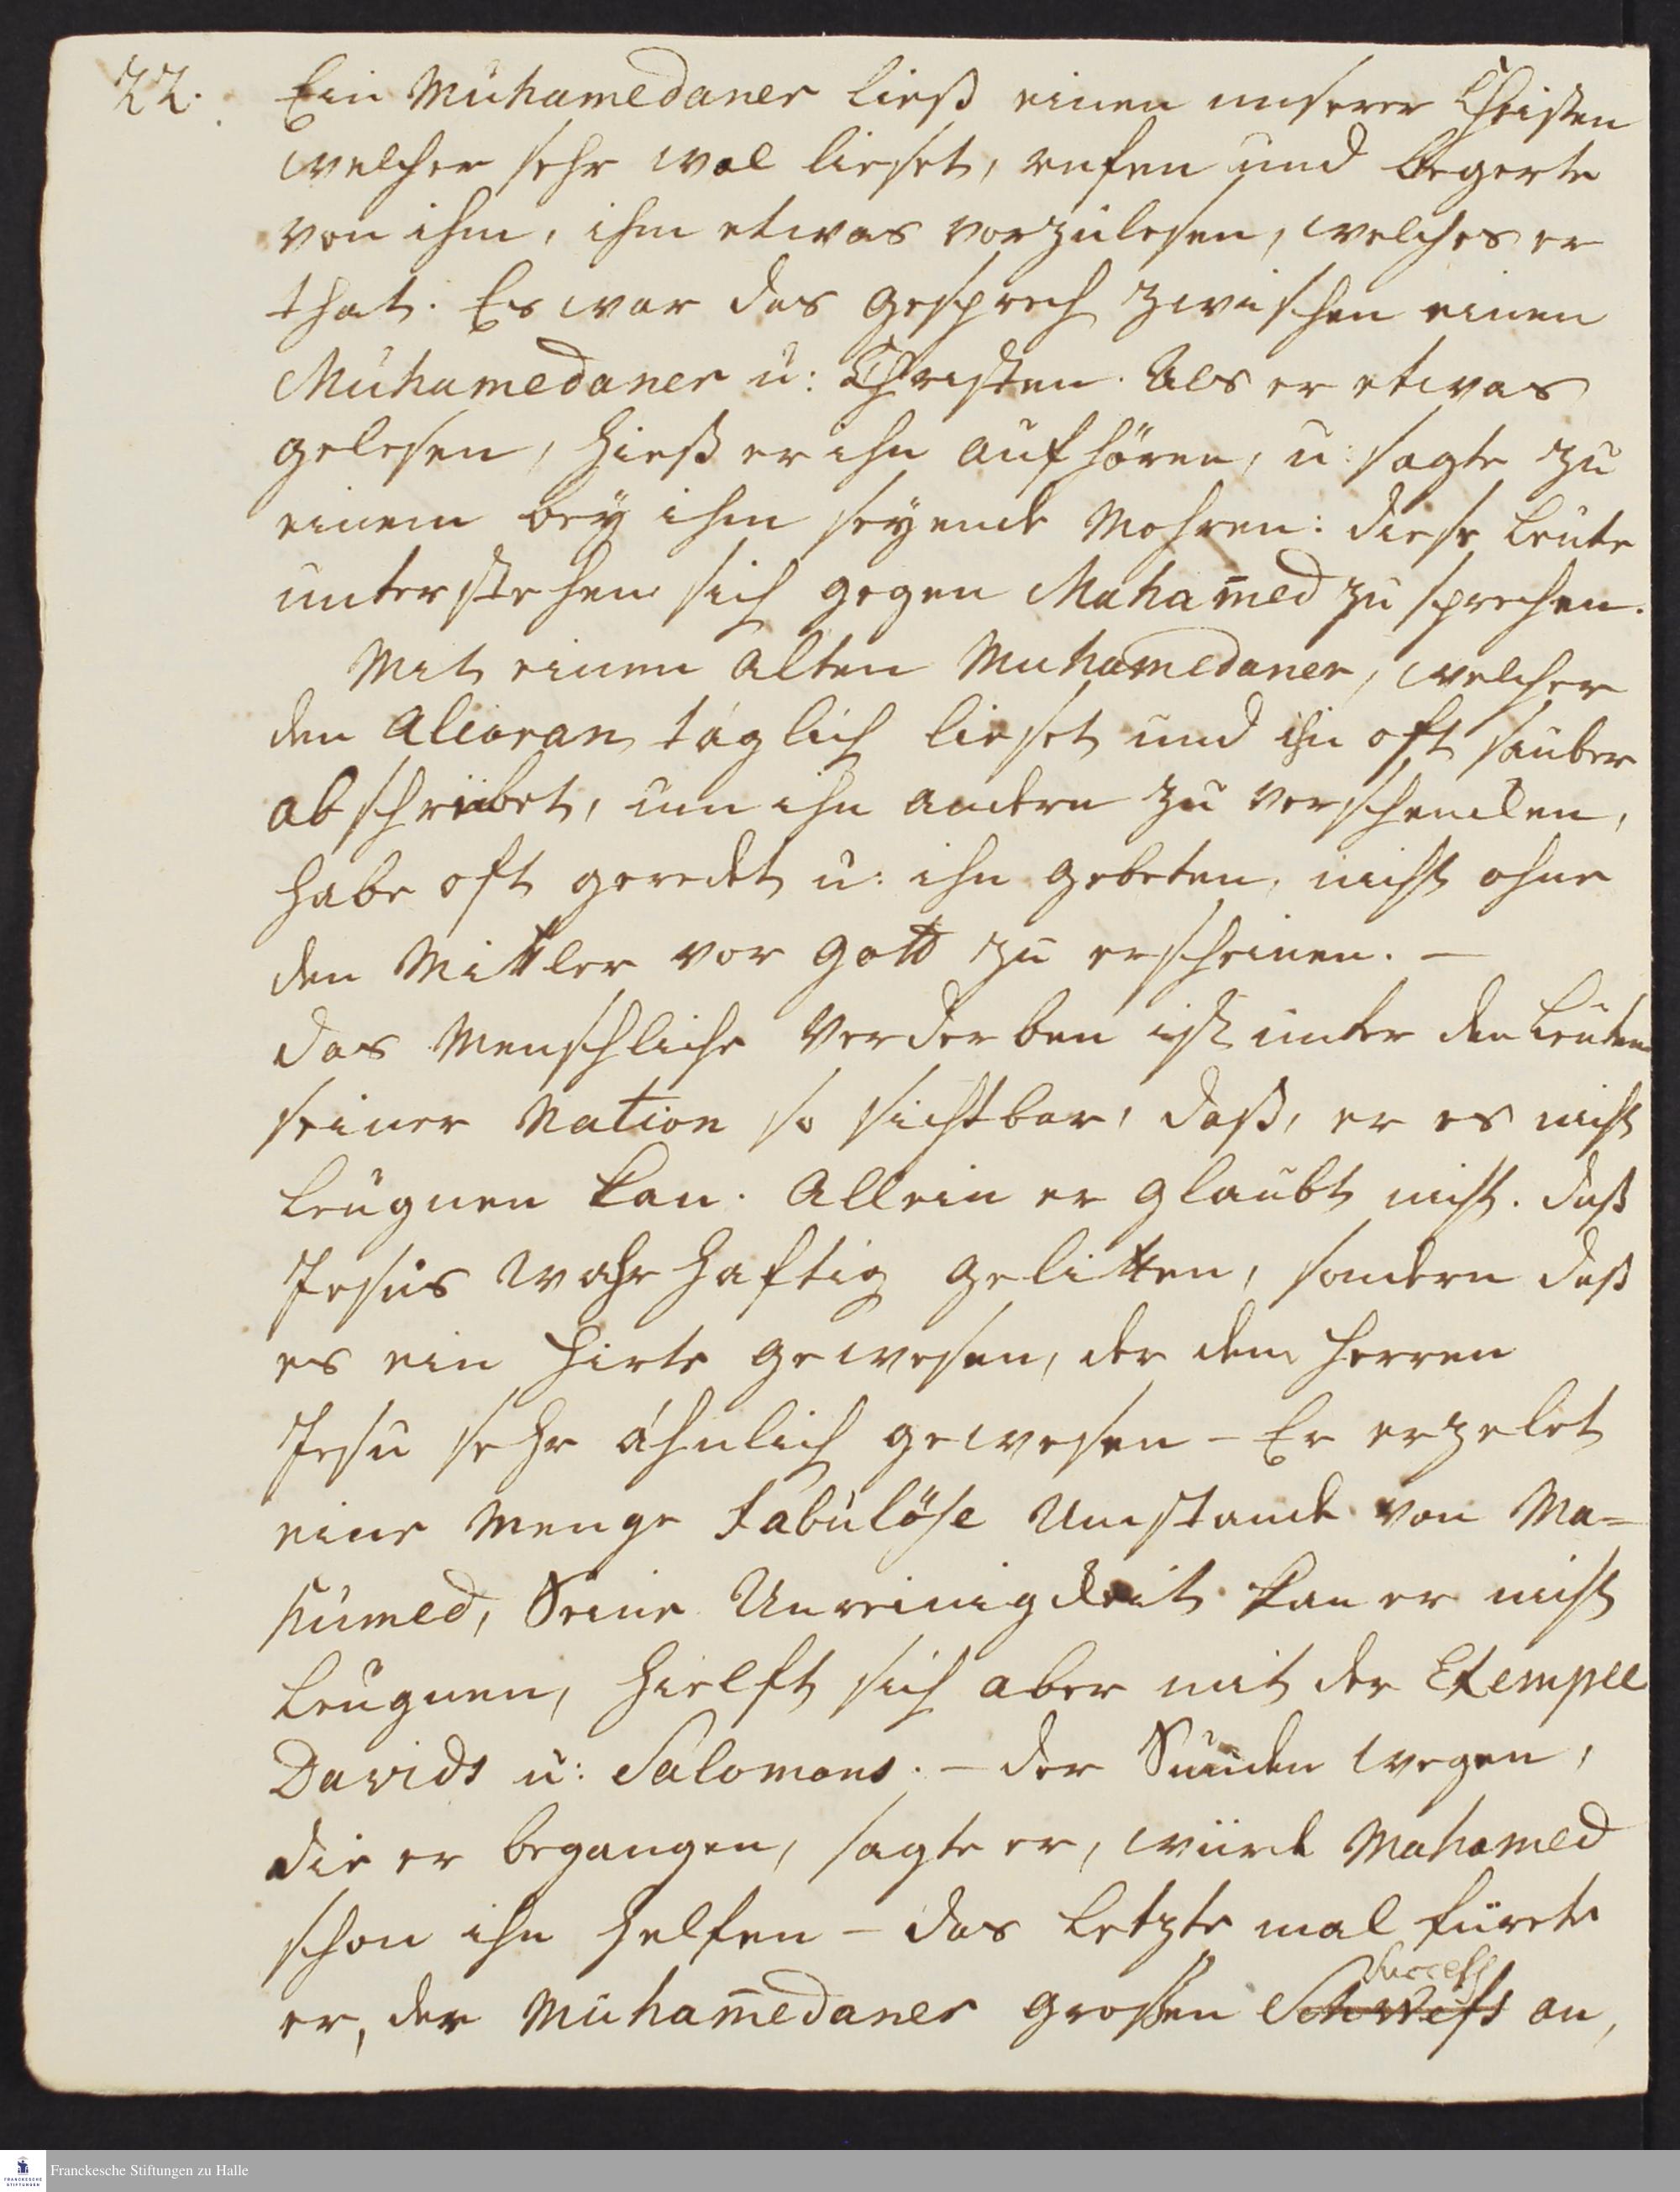 22. Ein Muhamedaner ließ einen unserer Christen
welcher sehr wol lieset, rufen und begerte
von ihm, ihm etwas vorzulesen, welches er
that. Es war das gesprech zwischen einen
Muhamedaner u: Christen. Als er etwas
gelesen, hieß er ihn aufhören, u: sagte zu
einem bey ihm seyende Mohren: diese Leute
unterstehen sich gegen Muham̄ed zu sprechen.
Mit einen alten Muhamedaner, welcher
den Alcoran täglich lieset und ihn oft sauber
abschreibet, um ihn andern zu verschencken,
habe oft geredet u: ihn gebeten, nicht ohne
den Mittler vor Gott zu erscheinen. —
das Menschliche Verderben ist unter den Leuten
seiner Nation so sichtbar, daß, er es nicht
leugnen kan. Allein er glaubt nicht. daß
Jesus wahrhaftig gelitten, sondern daß
es ein Hirte gewesen, der dem Herren
Jesu sehr ähnlich gewesen – Er erzelet
eine Menge fabulöse Umstande von Ma=
humed, Seine Unreinigkeit kan er nicht
leugnen, hielft sich aber mit der Exempel
Davids u: Salomons. – der Sünden wegen,
die er begangen, sagte er, würde Mahamed
schon ihn helfen – das letzte mal fürete
Success
er, der Muham̄edaner großen an,
Franckesche Stiftungen zu Halle
FRANCKESCHE
STIFTUNGEN